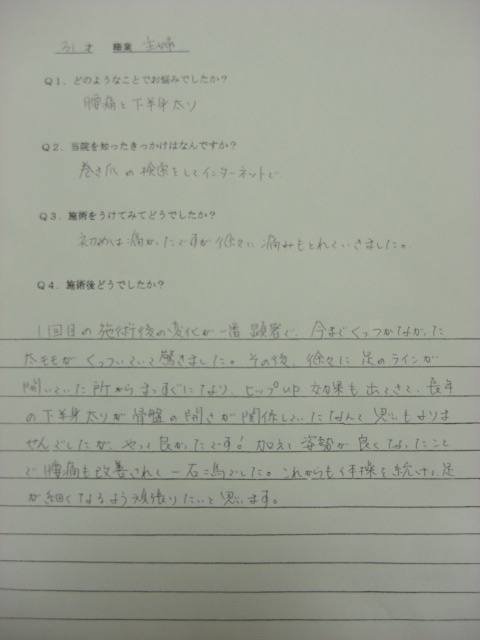 31才 職業 主婦
Q1．どのようなことでお悩みでしたか？
腰痛と下半身太り
Q2．当院を知ったきっかけはなんですか？
巻き爪の検索をしてインターネットで
Q3．施術をうけてみてどうでしたか？
初めは痛かったですが徐々に痛みもとれていきました。
Q4．施術後どうでしたか？
1回目の施術後の変化が一番顕著で、今までくっつかなかった
太モモがくっついていて驚きました。その後、徐々に足のラインが
開いていた所からまっすぐになり、ヒップup効果も出てきて、長年
の下半身太りが骨盤の開きが関係していたなんて思いもよりま
せんでしたが、やって良かったです！加えて姿勢が良くなったこと
で腰痛も改善されて一石二鳥でした。これからも体操を続けて足
が細くなるよう頑張りたいと思います。